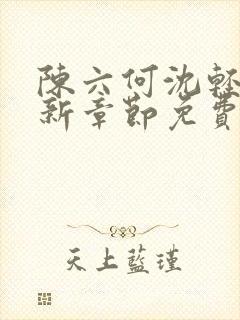 陳六何沈輕
新章節免費
天上藍瑾